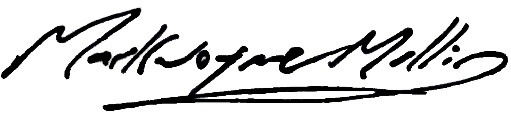 Markwayne Mullin